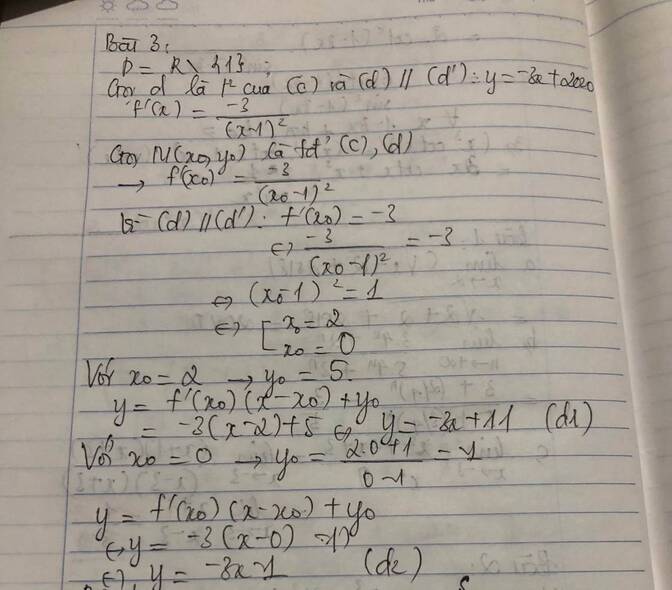 Bài 3:
D = R \ {1};
Gọi d là t² của (C) và (d) // (d') : y = -3x + 2020
f'(x) = -3/(x-1)²
Gọi M(x₀, y₀) là tđ' (C), (d)
→ f'(x₀) = -3/(x₀-1)²
Vì (d) // (d') : f'(x₀) = -3
⇔ -3/(x₀-1)² = -3
⇔ (x₀-1)² = 1
⇔ [ x₀ = 2
x₀ = 0
Với x₀ = 2 → y₀ = 5.
y = f'(x₀)(x-x₀) + y₀
= -3(x-2)+5 ⇔ y = -3x+11 (d1)
Với x₀ = 0 → y₀ = (2.0+1)/(0-1) = -1
y = f'(x₀)(x-x₀) + y₀
⇔ y = -3(x-0) -1
⇔ y = -3x-1 (d2)